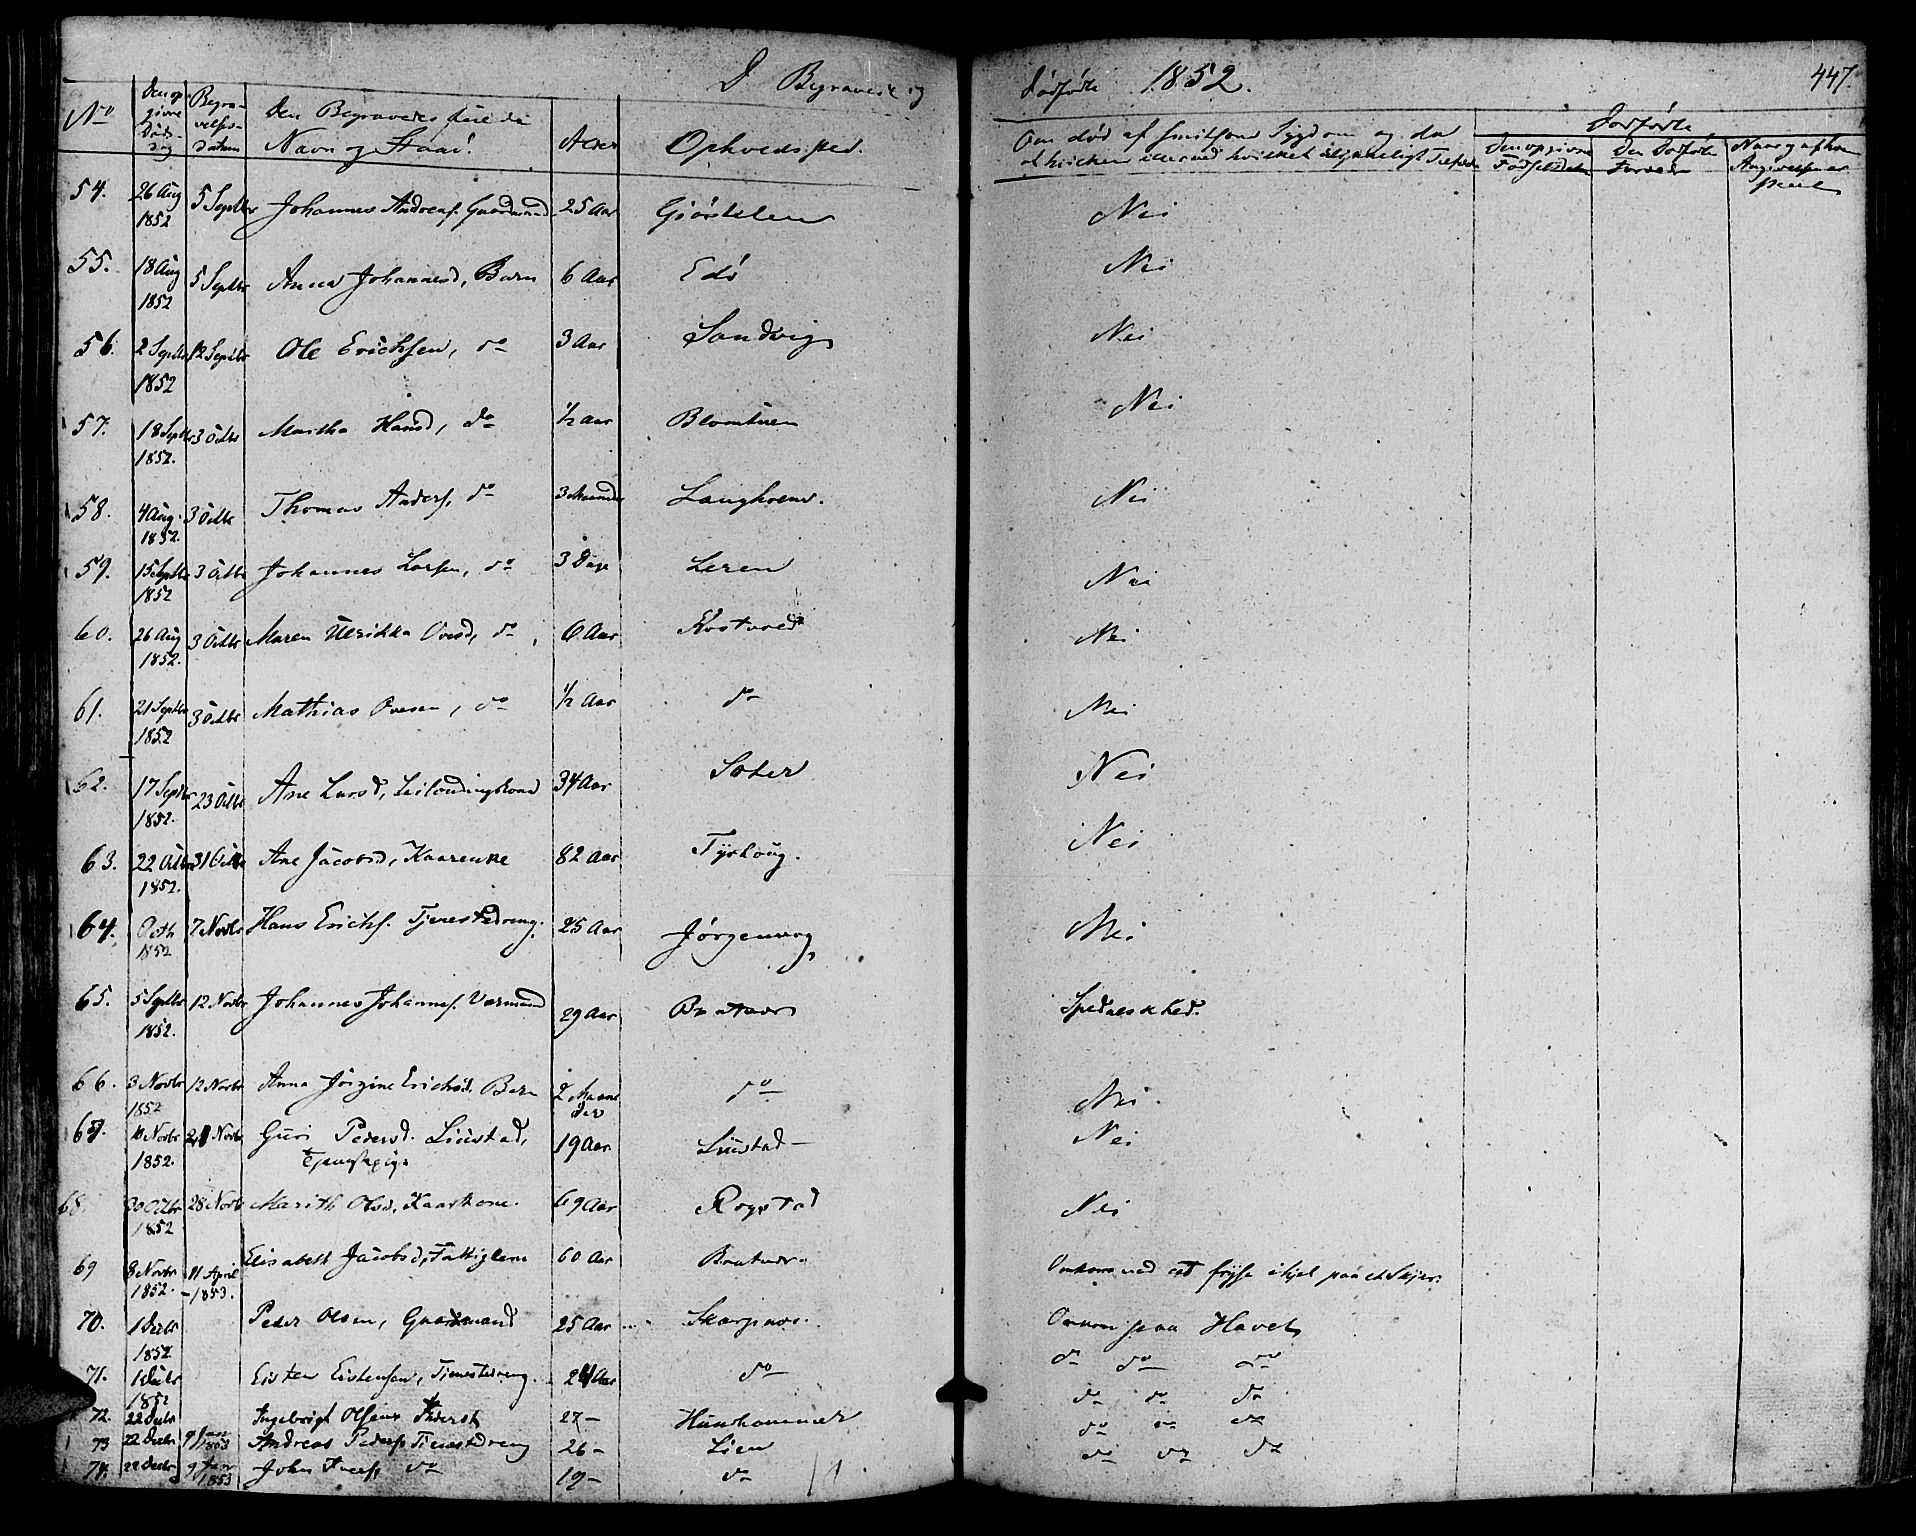 D Begravede og
dødfødte 1852.
447.
No
Den op
givne
Døds
dag
Begra-
velses-
datum
Den Begravedes fulde
Navn og Stand.
Alder
Opholdssted.
Om død af smitsom Sygdom og da
Dødfødte
Den opgivne
Fødselsdatum
Den Dødfødte
54. 26 Aug 1852 5 Septbr Johannes Andreas. Gaardmand 25 Aar Nei
55. 18 Aug 1852 5 Septbr Anna Johannesd, Barn 6 Aar Edø Nei
56. 2 Septbr 1852 12 Septbr Ole Erichsen, do 3 Aar Sandvig Nei
57. 18 Septbr 1852. 3 Octbr Martha Hansd, do ½ Aar Nei
58. 4 Aug. 1852. 3 Octbr Thomas Anders. do 3 Maaneder Langhoem. Nei
59. 15 Septbr 1852 3 Octbr Johannes Larsen, do 3 Dage Leren Nei
60. 26 Aug 1852. 3 Octbr Maren Ulrikka Ovesd, do 6 Aar Nei
61. 21 Septbr 1852 3 Octbr Mathias Ovesen, do ½ Aar do Nei
62. 17 Septbr 1852. 23 Octbr Ane Larsd, Leilendingskone 34 Aar Nei
63. 22 Octbr 1852. 31 Octbr Ane Jacobsd, Kaarenke 82 Aar Tyrhoug. Nei
64. Octb 1852 7 Novbr Hans Erichs. Tjenestedreng. 25 Aar Jørgenvog Nei
65. 5 Septbr 1852. 12 Novbr Johannes Johannes. 29 Aar Bratvær Spedalskhed.
66. 3 Novbr 1852 12 Novbr Anna Jørgine Erichsd. Barn 2 Maaneder do Nei.
67. 10 Novbr 1852. 21 Novbr Guri Pedersd. Liustad, Tjenestepige 19 Aar Liustad Nei
68. 30 Octbr 1852 28 Novbr Marith Olsd, Kaarkone. 69 Aar Rogstad Nei
69 8 Novbr 1852. 11 April 1853. Elisabeth Jacobsd, Fattiglem 60 Aar Bratvær. Omkom ved at fryse ihjel paa et Skjær.
70. 1 Decbr 1852 Peder Olsen, Gaardmand 25 Aar Omkom paa Havet
71. 1 Decbr 1852 Eisten Eistensen, Tjenestedreng. 24 Aar do do do do
72. 22 Decbr Ingebrigt Olsen 27 — Hunhammer do do do
73 22 Decbr 9 Jan 1853 Andreas Peders. Tjenestedreng 26 — Lien do do do
74. 22 Decbr 9 Jan 1853 John do 19 — do do do do